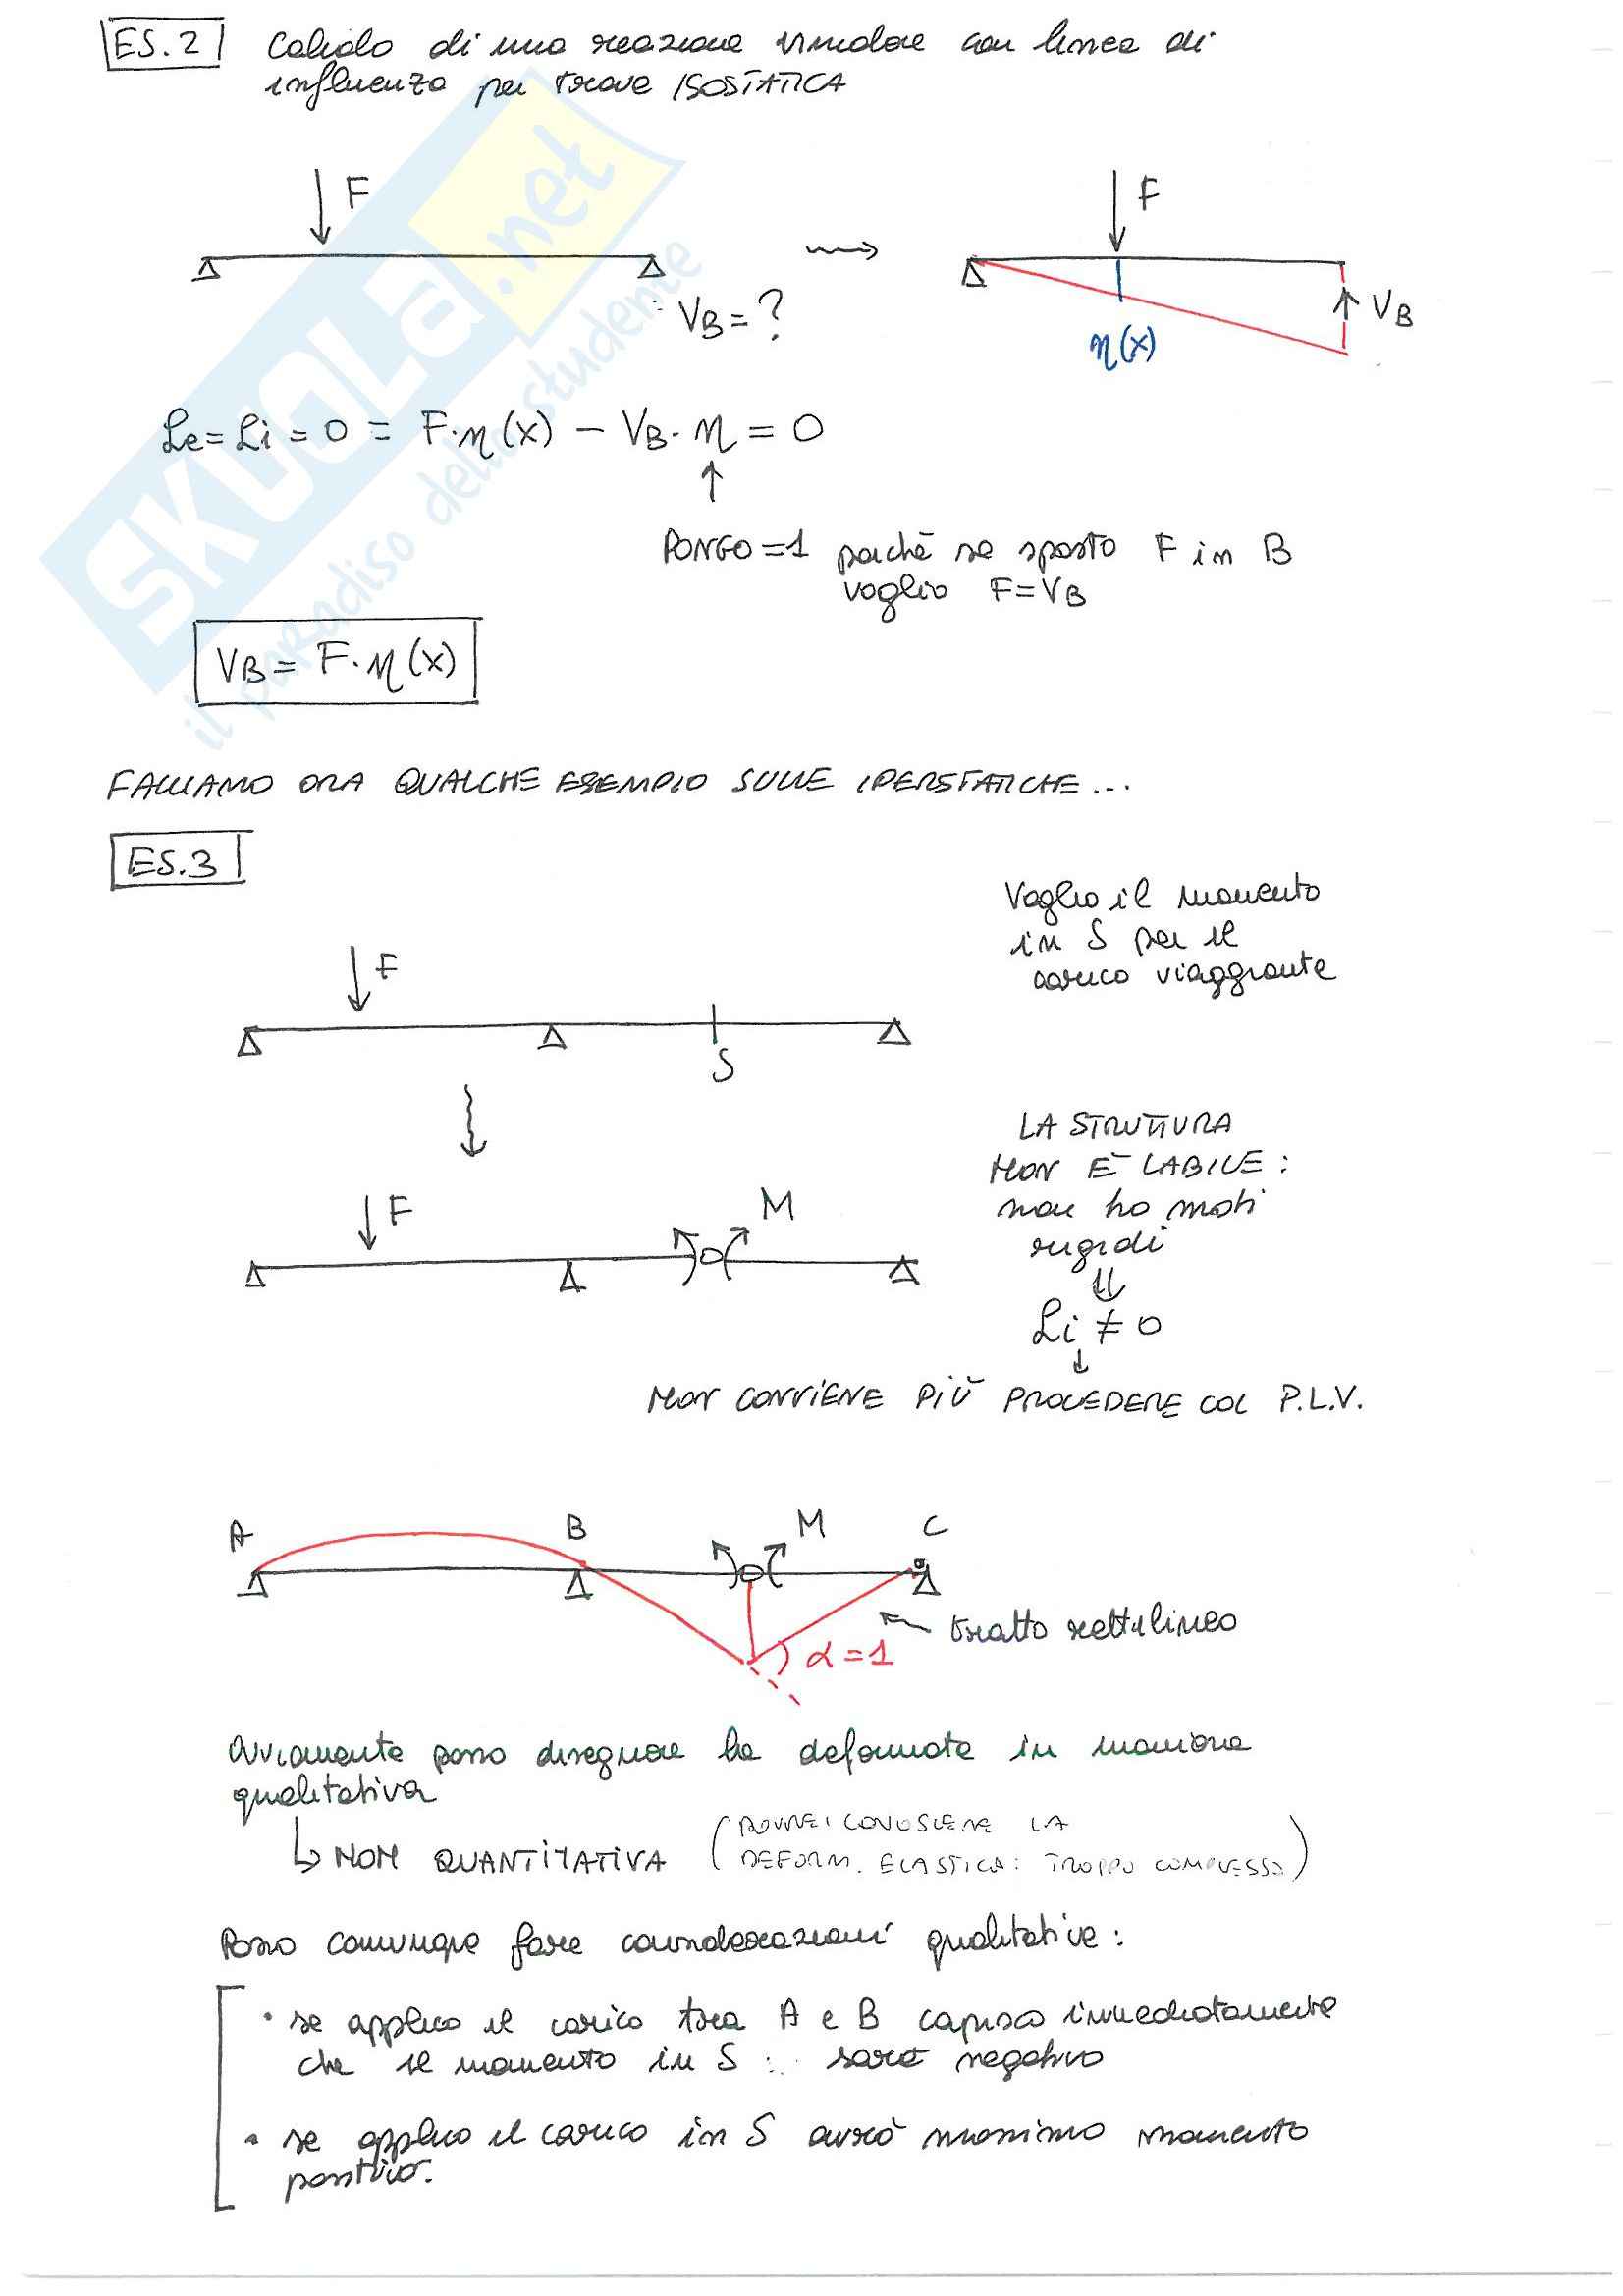 ES.2 Calcolo di una reazione vincolare con linea di
influenza per trave ISOSTATICA
F
F
VB = ?
VB
η(x)
Le = Li = 0 = F·η(x) − VB·η = 0
↑
PONGO = 1 poiché se sposto F in B
voglio F = VB
VB = F·η(x)
FACCIAMO ORA QUALCHE ESEMPIO SULLE IPERSTATICHE...
ES.3
Voglio il momento
in S per il
carico viaggiante
F
S
LA STRUTTURA
NON È LABILE:
non ho moti
rigidi
⇓
Li ≠ 0
↓
F
M
NON CONVIENE PIÙ PROCEDERE COL P.L.V.
A
B
M
C
tratto rettilineo
α = 1
Ovviamente posso disegnare la deformata in maniera
qualitativa
↳ NON QUANTITATIVA (DOVREI CONOSCERE LA
DEFORM. ELASTICA: TROPPO COMPLESSO)
Posso comunque fare considerazioni qualitative:
• se applico il carico tra A e B capisco immediatamente
che il momento in S sarà negativo
• se applico il carico in S avrò massimo momento
positivo.
SKUOLA.net
il paradiso dello studente